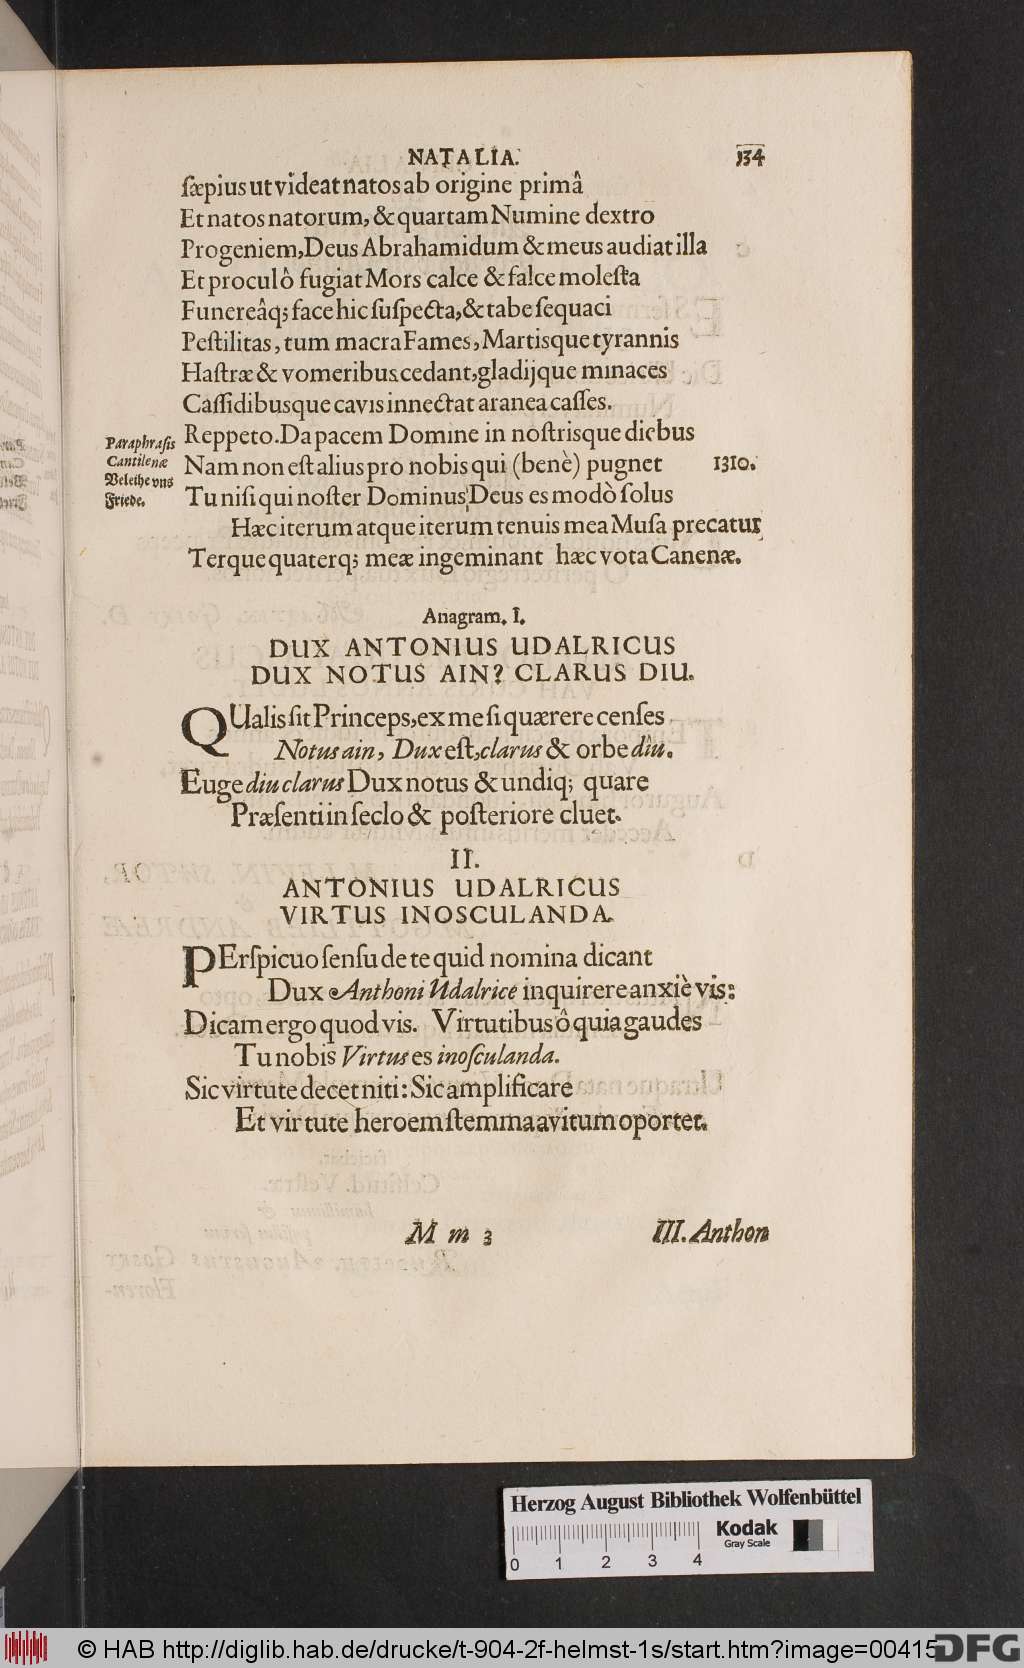 NATALIA. 134
sæpius ut videat natos ab origine primâ
Et natos natorum, & quartam Numine dextro
Progeniem, Deus Abrahamidum & meus audiat illa
Et procul ô fugiat Mors calce & falce molesta
Funereâq; face hic suspecta, & tabe sequaci
Pestilitas, tum macra Fames, Martisque tyrannis
Hastræ & vomeribus cedant, gladijque minaces
Cassidibusque cavis innectat aranea casses.
Paraphrasis
Cantilenæ
Veleihe uns
Friede.
Reppeto. Da pacem Domine in nostrisque diebus
Nam non est alius pro nobis qui (benè) pugnet 1310.
Tu nisi qui noster Dominus, Deus es modò solus
Hæc iterum atque iterum tenuis mea Musa precatur
Terque quaterq; meæ ingeminant hæc vota Canenæ.
Anagram. I.
DUX ANTONIUS UDALRICUS
DUX NOTUS AIN? CLARUS DIU.
QUalis sit Princeps, ex me si quærere censes
Notus ain, Dux est, clarus & orbe diu.
Euge diu clarus Dux notus & undiq; quare
Præsenti in seclo & posteriore cluet.
II.
ANTONIUS UDALRICUS
VIRTUS INOSCULANDA.
PErspicuo sensu de te quid nomina dicant
Dux Anthoni Udalrice inquirere anxiè vis:
Dicam ergo quod vis. Virtutibus ô quia gaudes
Tu nobis Virtus es inosculanda.
Sic virtute decet niti: Sic amplificare
Et virtute heroem stemma avitum oportet.
M m 3 III. Anthon
Herzog August Bibliothek Wolfenbüttel
Kodak
Gray Scale
0 1 2 3 4
© HAB http://diglib.hab.de/drucke/t-904-2f-helmst-1s/start.htm?image=00415
DFG